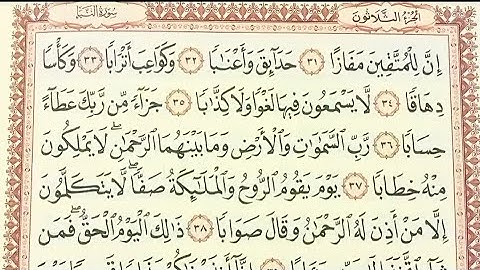 الجزء الثلاثون سورة النبإ
إِنَّ لِلْمُتَّقِينَ مَفَازًا ٣١ حَدَآئِقَ وَأَعْنَٰبًا ٣٢ وَكَوَاعِبَ أَتْرَابًا ٣٣ وَكَأْسًا
دِهَاقًا ٣٤ لَّا يَسْمَعُونَ فِيهَا لَغْوًا وَلَا كِذَّٰبًا ٣٥ جَزَآءً مِّن رَّبِّكَ عَطَآءً
حِسَابًا ٣٦ رَّبِّ ٱلسَّمَٰوَٰتِ وَٱلْأَرْضِ وَمَا بَيْنَهُمَا ٱلرَّحْمَٰنِ ۖ لَا يَمْلِكُونَ
مِنْهُ خِطَابًا ٣٧ يَوْمَ يَقُومُ ٱلرُّوحُ وَٱلْمَلَٰٓئِكَةُ صَفًّا ۖ لَّا يَتَكَلَّمُونَ
إِلَّا مَنْ أَذِنَ لَهُ ٱلرَّحْمَٰنُ وَقَالَ صَوَابًا ٣٨ ذَٰلِكَ ٱلْيَوْمُ ٱلْحَقُّ ۖ فَمَن